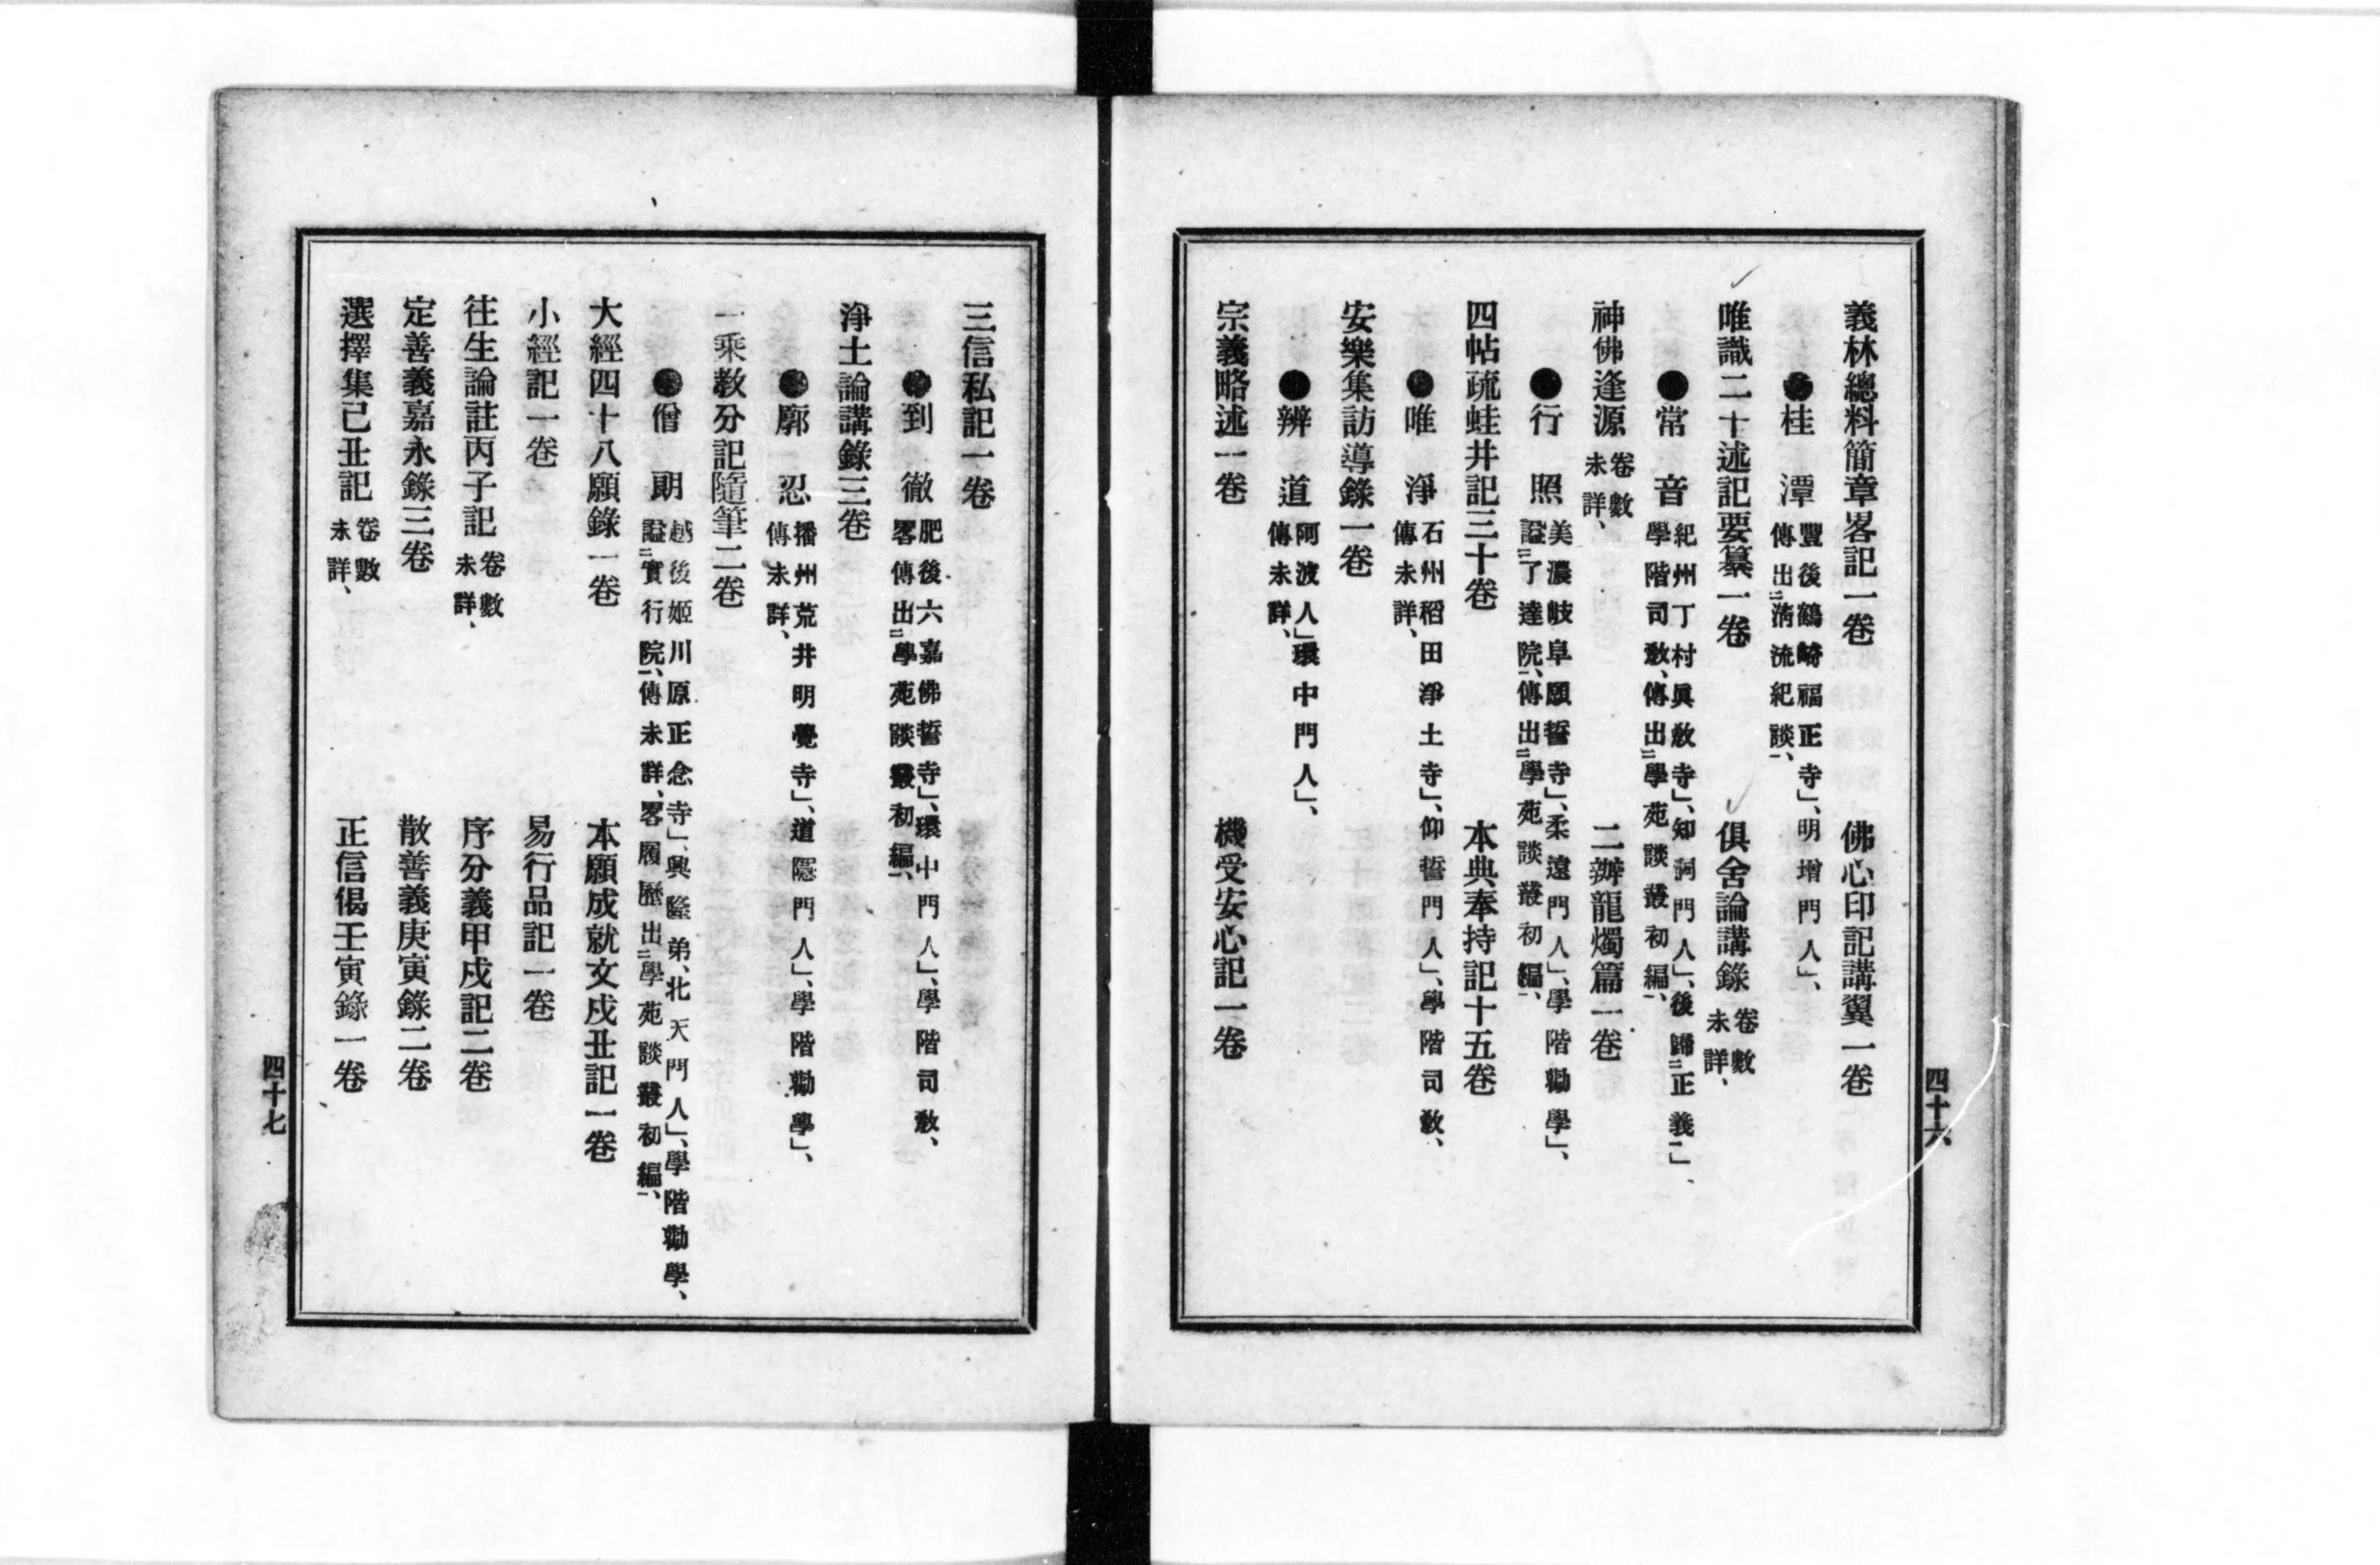 義林總料簡章畧記一卷　佛心印記講翼一卷
●桂　潭　豐後鶴崎福正寺」、明增門人」、
傳出二淸流紀談一、
唯識二十述記要纂一卷　俱舍論講錄　卷數
未詳、
●常　音　紀州丁村眞敎寺」、知洞門人」、後歸二正義一」、
學階司敎、傳出二學苑談叢初編一、
神佛逢源　卷數
未詳、
二辨龍燭篇一卷
●行　照　美濃岐阜願誓寺」、柔遠門人」、學階勸學」、
諡二了達院一、傳出二學苑談叢初編一、
四帖疏蛙井記三十卷　本典奉持記十五卷
●唯　淨　石州稻田淨土寺」、仰誓門人」、學階司敎、
傳未詳、
安樂集訪導錄一卷
●辨　道　阿波人」環中門人」、
傳未詳、
宗義略述一卷　機受安心記一卷
四十六
三信私記一卷
●到　徹　肥後六嘉佛誓寺」、環中門人」、學階司敎、
畧傳出二學苑談叢初編一、
淨土論講錄三卷
●廓　忍　播州荒井明覺寺」、道隱門人」、學階勸學」、
傳未詳、
一乘敎分記隨筆二卷
●僧　朗　越後姬川原正念寺」、興隆弟、北天門人」、學階勸學、
諡二實行院一、傳未詳、畧履歷出二學苑談叢初編一、
大經四十八願錄一卷　本願成就文戍丑記一卷
小經記一卷　易行品記一卷
往生論註丙子記　卷數
未詳、
序分義甲戍記二卷
定善義嘉永錄三卷　散善義庚寅錄二卷
選擇集己丑記　卷數
未詳、
正信偈壬寅錄一卷
四十七